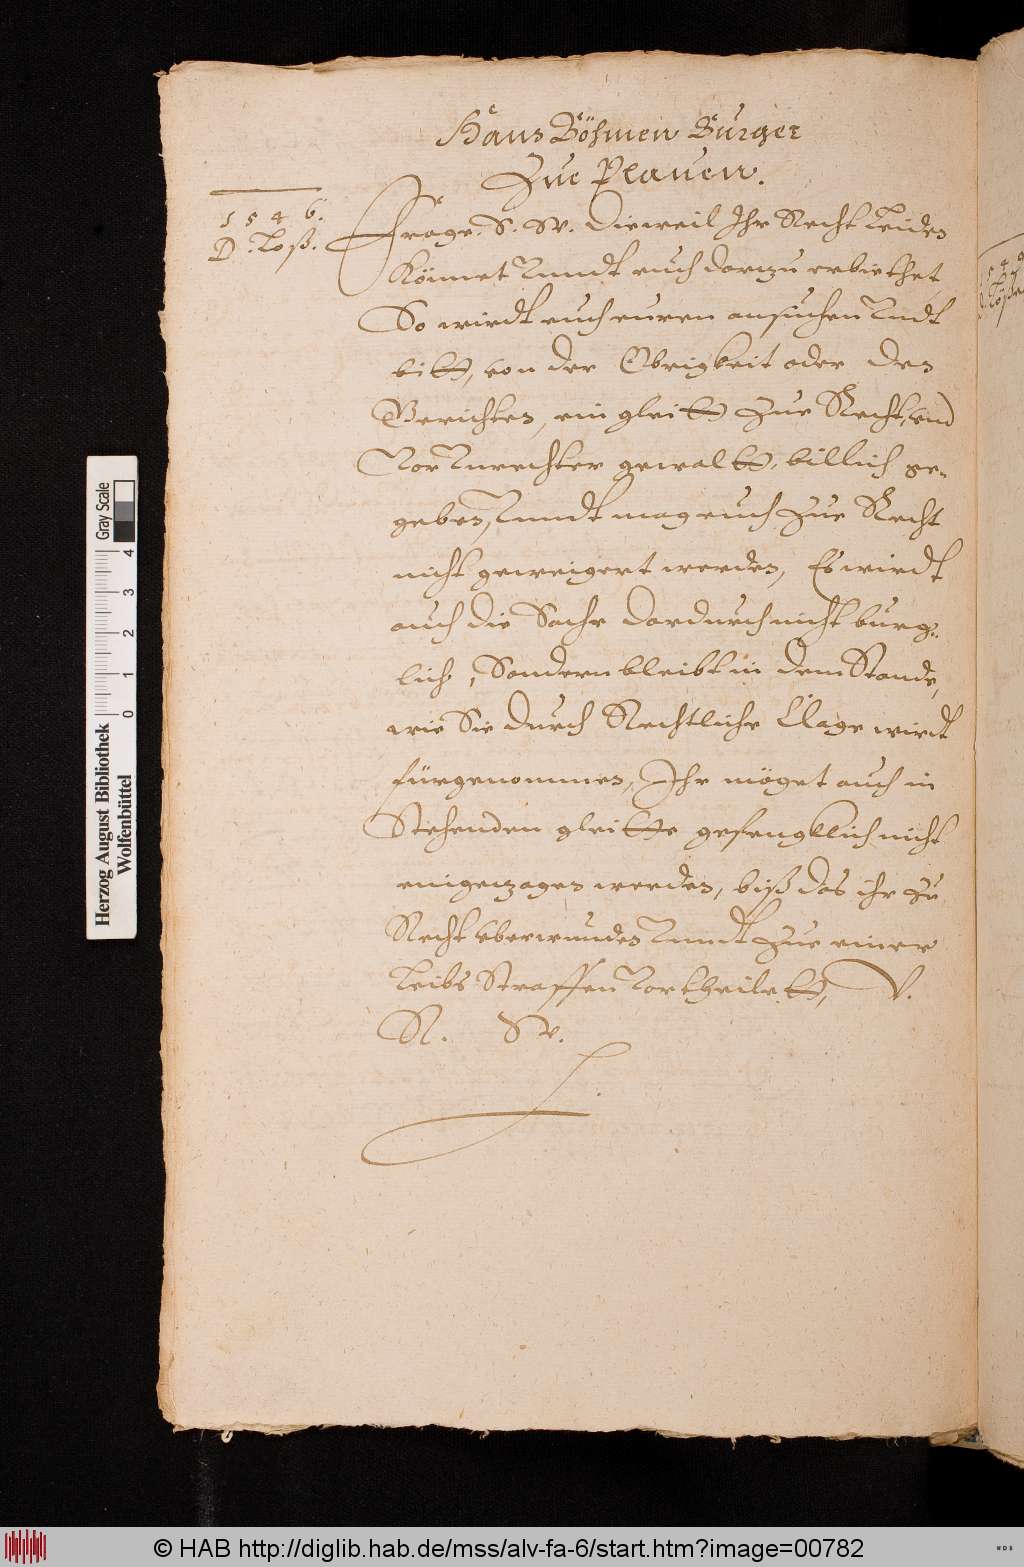 Hans Böhmen Burger
Zue Plauen.
1546.
D. Loß.
Frage. S. W. Dieweil Ihr Recht leiden
Könnet Vnndt euch darzu erbiethet
So wirdt euch euren ansuchen Vndt
bitt, von der Obrigkeit oder den
Gerichten, ein gleitt Zue Recht, vnd
Vor Vnrechter gewaltt, billich ge-
geben, Vnndt mag euch Zue Recht
nicht geweigert werden, Es wirdt
auch die Sache dardurch nicht burg-
lich, Sondern bleibt in dem Stande,
wie Sie durch Rechtliche Clage wirdt
fürgenommen, Ihr möget auch in
Stehenden gleitte gefengklich nicht
eingezogen werden, biß das ihr zu
Recht vberwunden Vnndt Zue einer
Leibs Straffen Vortheilett, V.
R. W.
Herzog August Bibliothek
Wolfenbüttel
0 1 2 3 4
Gray Scale
© HAB http://diglib.hab.de/mss/alv-fa-6/start.htm?image=00782